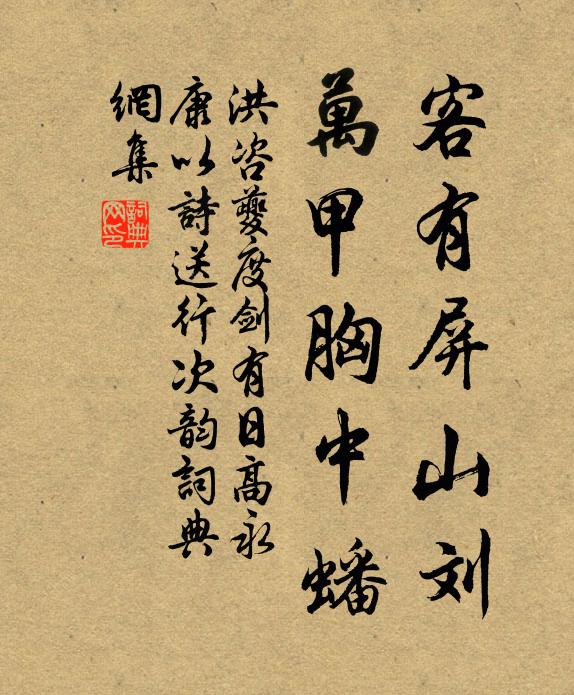 客有屏山刘
萬甲胸中蟠
洪咨夔度劍有日高永
康以詩送行次韵詞典
網集
詞典
网印